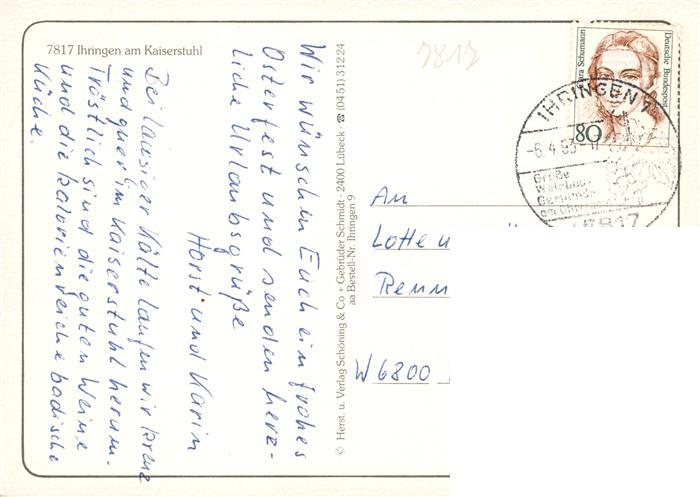 7817 Ihringen am Kaiserstuhl
Wir wünschen Euch ein frohes
Osterfest und senden herz-
liche Urlaubsgrüße
Horst und Karin
Bei lausiger Kälte laufen wir kreuz
und quer im Kaiserstuhl herum.
Tröstlich sind die guten Weine
und die kalorienreiche badische
Küche.
© Herst. u. Verlag Schöning & Co + Gebrüder Schmidt · 2400 Lübeck · ☎ (0451) 31224
aa Bestell-Nr. Ihringen 9
7817
Clara Schumann
Deutsche Bundespost
80
IHRINGEN 1
-6.4.93-17
Große
Weinbau-
Gemeinde
am
7817
An
Lotte u
Renn
W 6800